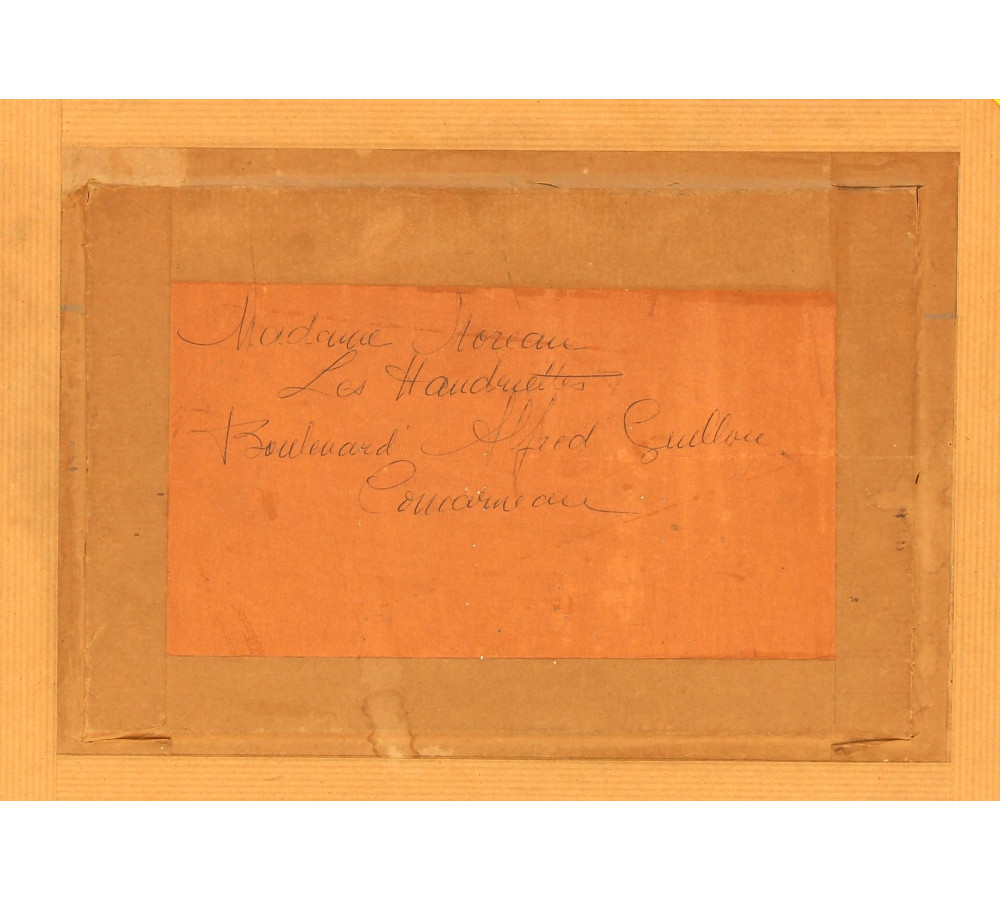 Madame Horeau
Les Haudriettes
Boulevard Alfred Guillou
Concarneau